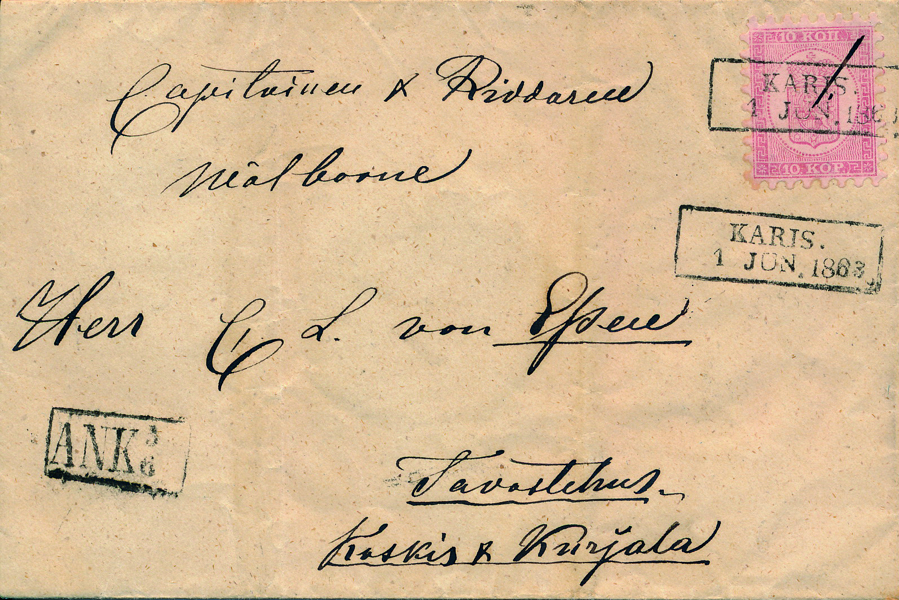 10 КОП.
KARIS.
1 JUN. 1863
10 KOP.
Capitainen & Riddaren
Wälborne
KARIS.
1 JUN. 1863
Herr C. L. von Essen
ANK 3/6
Tavastehus.
Koskis & Kurjala